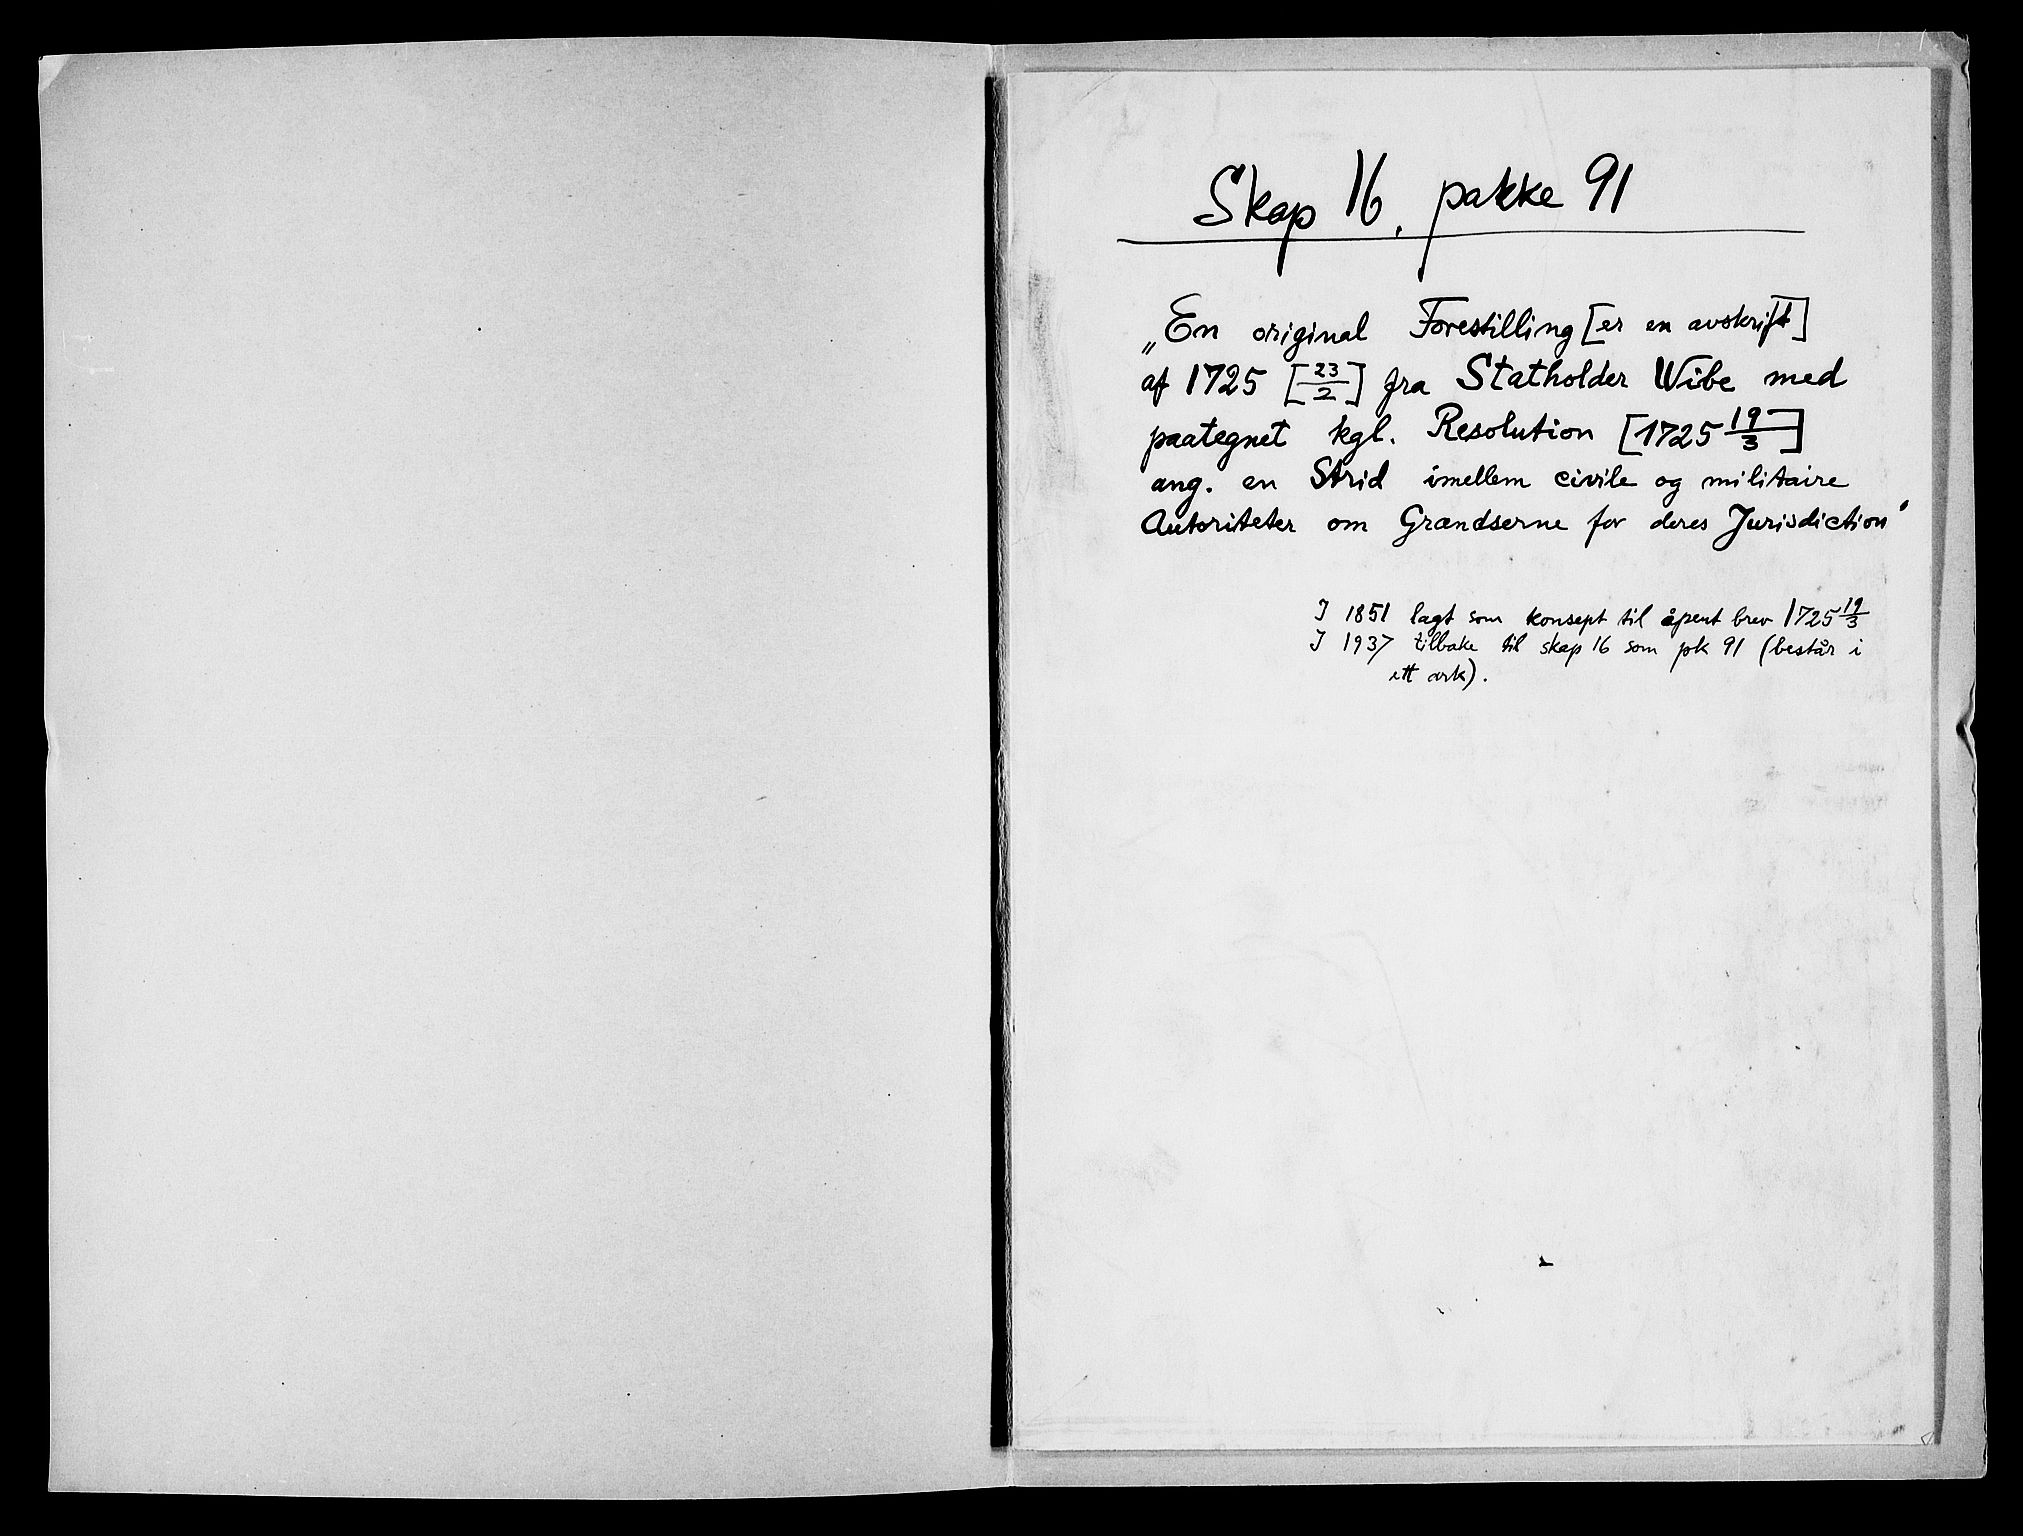 Skap 16, pakke 91
„En original Forestilling [er en avskrift]
af 1725 [23/2] fra Statholder Wibe med
paategnet kgl. Resolution [1725 19/3]
ang. en Strid imellem civile og militaire
Autoriteter om Grændserne for deres Jurisdiction"
I 1851 lagt som konsept til åpent brev 1725 19/3
I 1937 tilbake til skap 16 som pk 91 (består i
ett ark).